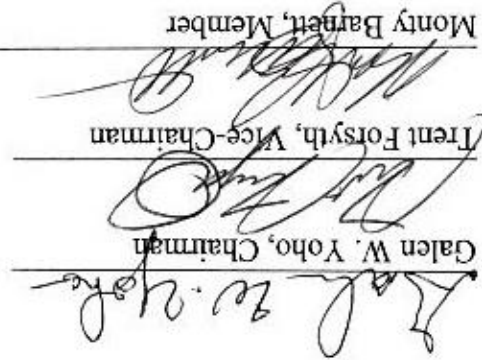 Galen W. Yoho
Galen W. Yoho, Chairman
Trent Forsyth, Vice-Chairman
Monty Barnett, Member